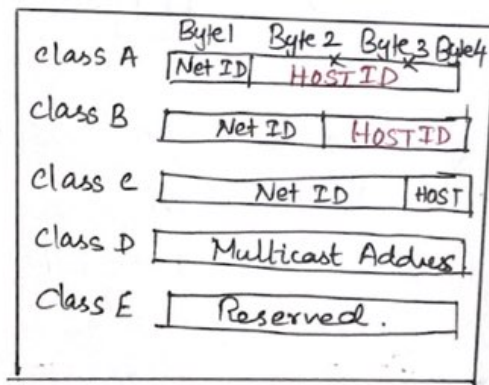 Byte1 Byte 2 Byte 3 Byte4
Class A Net ID HOST ID
Class B Net ID HOST ID
Class C Net ID HOST
Class D Multicast Address
Class E Reserved.